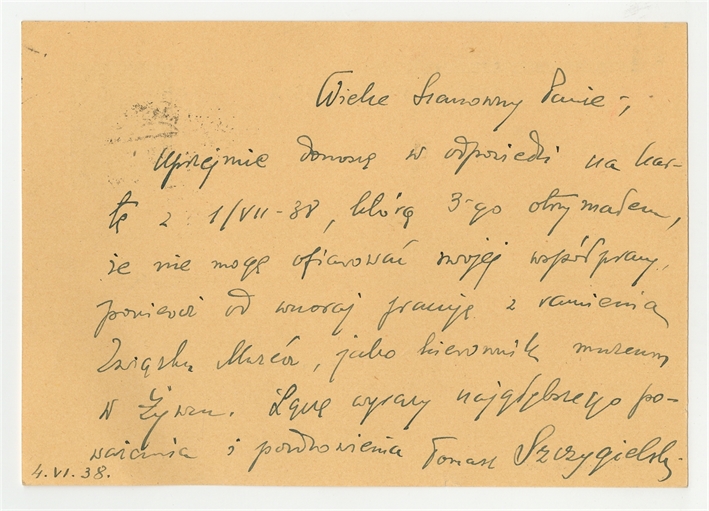 Wielce Szanowny Panie,
Uprzejmie donoszę w odpowiedzi na kar-
tę z 1/VII-38, którą 3-go otrzymałem,
że nie mogę ofiarować swojej współpracy,
ponieważ od wczoraj pracuję z ramienia
Związku Muzeów, jako kierownik muzeum
w Żywcu. Łączę wyrazy najgłębszego po-
ważania i pozdrowienia Tomasz Szczygielski
4.VI.38.